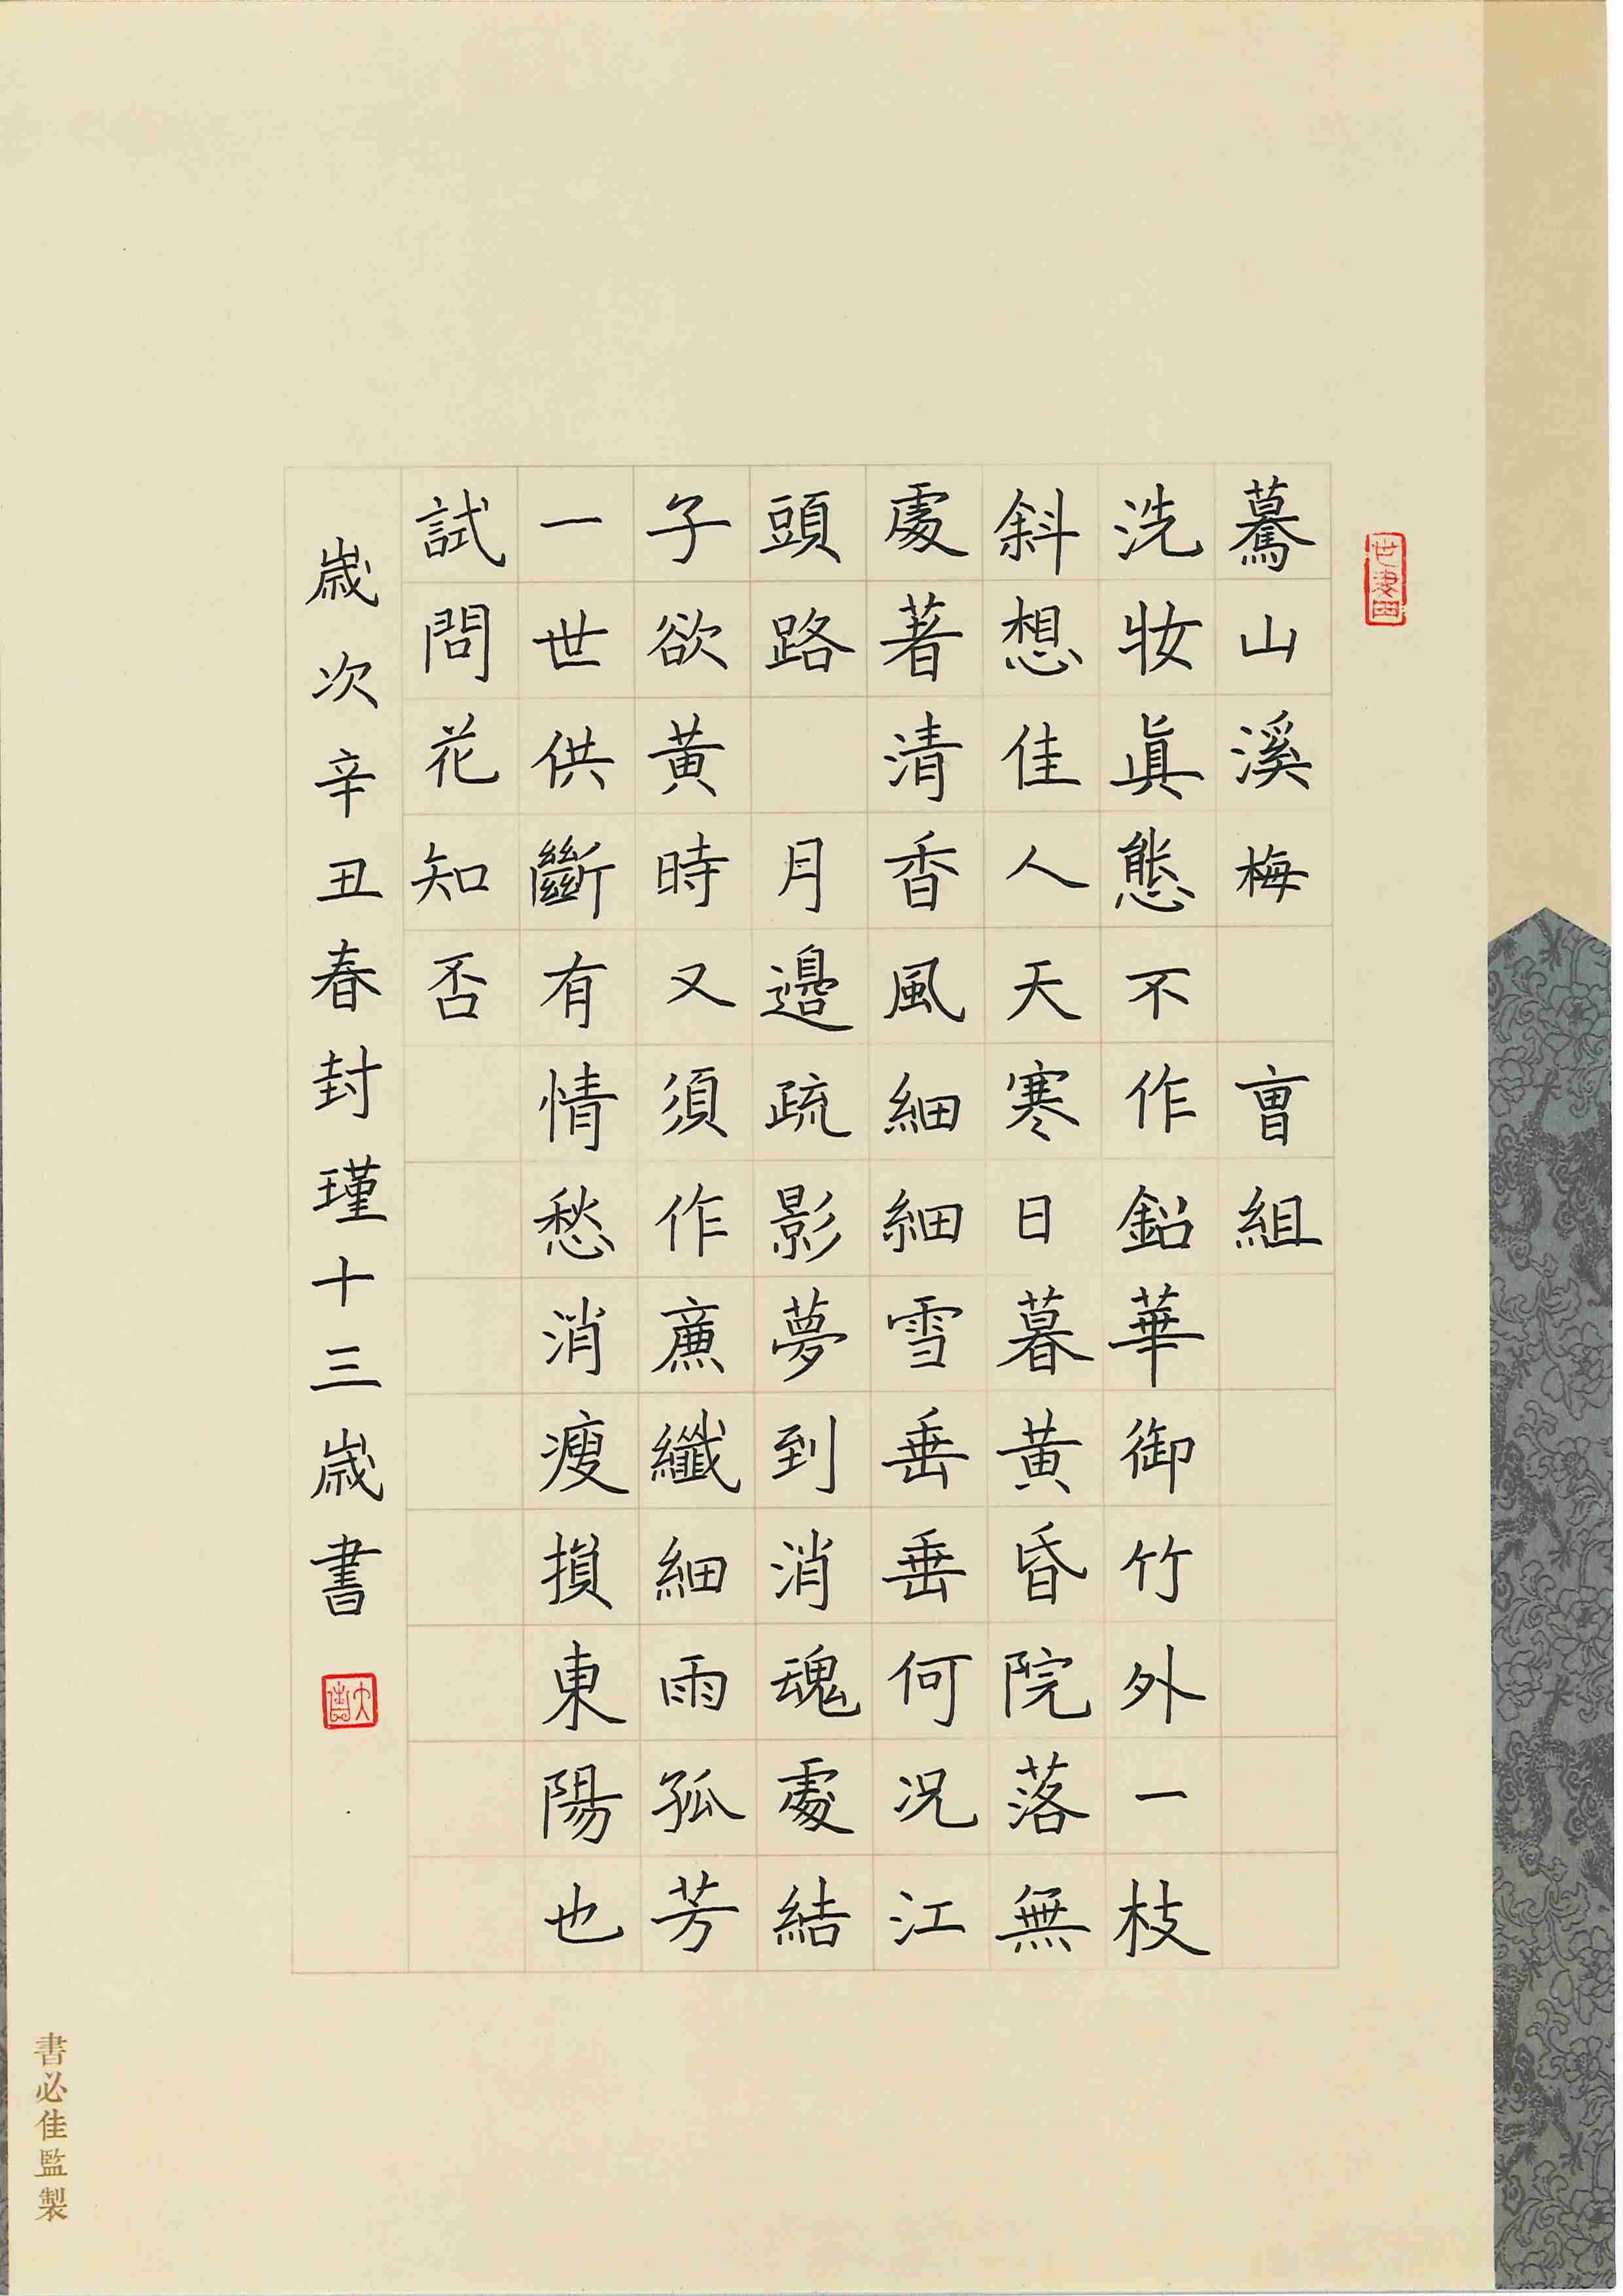 驀山溪梅 曺組
洗妝眞態不作鉛華御竹外一枝
斜想佳人天寒日暮黃昏院落無
處著清香風細細雪垂垂何況江
頭路 月邊疏影夢到消魂處結
子欲黃時又須作廉纖細雨孤芳
一世供斷有情愁消瘦損東陽也
試問花知否
歲次辛丑春封瑾十三歲書
書必佳監製